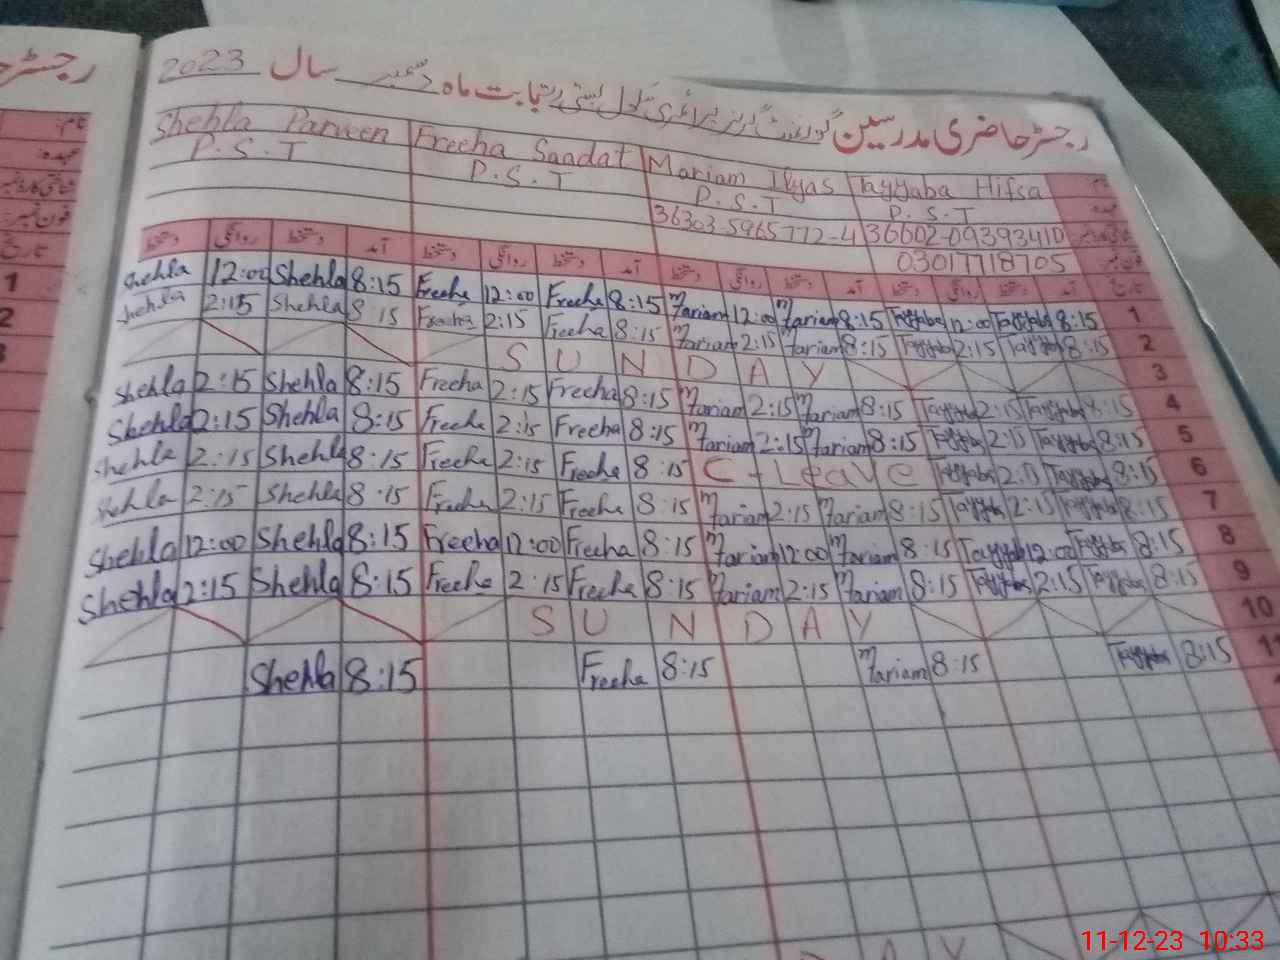 رجسٹر حاضری مدرسین گورنمنٹ گرلز پرائمری بابت ماہ دسمبر سال 2023
Shehla Parveen Freeha Saadat Mariam Ilyas Tayyaba Hifsa
P.S.T P.S.T P.S.T P.S.T
36303-5965772-4 36602-09393410
03017718705
دستخط روانگی دستخط آمد دستخط روانگی دستخط آمد دستخط روانگی دستخط آمد دستخط روانگی دستخط آمد تاریخ
Shehla 12:00 Shehla 8:15 Freeha 12:00 Freeha 8:15 Mariam 12:00 Mariam 8:15 Tayyaba 12:00 Tayyaba 8:15 1
Shehla 2:15 Shehla 8:15 Freeha 2:15 Freeha 8:15 Mariam 2:15 Mariam 8:15 Tayyaba 2:15 Tayyaba 8:15 2
SUNDAY 3
Shehla 2:15 Shehla 8:15 Freeha 2:15 Freeha 8:15 Mariam 2:15 Mariam 8:15 Tayyaba 2:15 Tayyaba 8:15 4
Shehla 2:15 Shehla 8:15 Freeha 2:15 Freeha 8:15 Mariam 2:15 Mariam 8:15 Tayyaba 2:15 Tayyaba 8:15 5
Shehla 2:15 Shehla 8:15 Freeha 2:15 Freeha 8:15 C-Leave Tayyaba 2:15 Tayyaba 8:15 6
Shehla 2:15 Shehla 8:15 Freeha 2:15 Freeha 8:15 Mariam 2:15 Mariam 8:15 Tayyaba 2:15 Tayyaba 8:15 7
Shehla 12:00 Shehla 8:15 Freeha 12:00 Freeha 8:15 Mariam 12:00 Mariam 8:15 Tayyaba 12:00 Tayyaba 8:15 8
Shehla 2:15 Shehla 8:15 Freeha 2:15 Freeha 8:15 Mariam 2:15 Mariam 8:15 Tayyaba 2:15 Tayyaba 8:15 9
SUNDAY 10
Shehla 8:15 Freeha 8:15 Mariam 8:15 Tayyaba 8:15 11
A Y
11-12-23 10:33